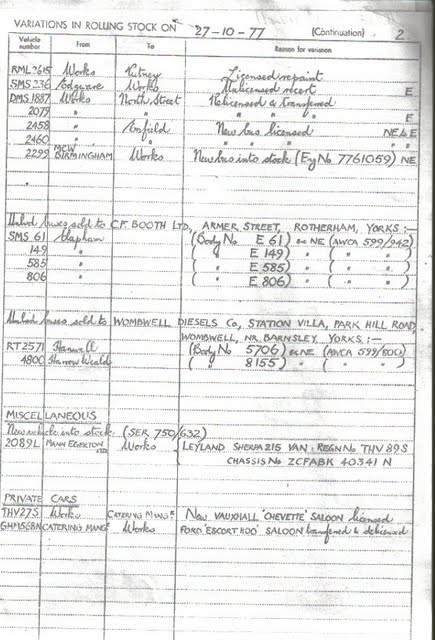 VARIATIONS IN ROLLING STOCK ON 27-10-77 (Continuation) 2
Vehicle number From To Reason for variation
RML 2615 Works Putney Licensed repaint
SMS 236 Edgware Works Unlicensed recert E
DMS 1887 Works North Street Relicensed & transferred
2079 " " " " " E
2458 " Enfield New bus licensed NE & E
2460 " " " " " "
2299 MCW BIRMINGHAM Works New bus into stock (Eng No 7761059) NE
Unlicd buses sold to C.F. BOOTH LTD, ARMER STREET, ROTHERHAM, YORKS :—
SMS 61 Clapham (Body No E 61) ex NE (AWCA 599/942)
149 " ( " E 149) " ( " " )
585 " ( " E 585) " ( " " )
806 " ( " E 806) " ( " " )
Unlicd buses sold to WOMBWELL DIESELS Co, STATION VILLA, PARK HILL ROAD,
WOMBWELL, NR. BARNSLEY, YORKS :—
RT 2571 Hanwell (Body No 5706) ex NE (AWCA 599/800)
4800 Harrow Weald ( " 8155) " ( " " )
MISCELLANEOUS
New vehicle into stock. (SER 750/632)
2089L MANN EGERTON Works LEYLAND SHERPA 215 VAN : REGN No THV 89S
CHASSIS No ZCFABK 40341 N
PRIVATE CARS
THV 27S Works CATERING MANGR New VAUXHALL 'CHEVETTE' SALOON licensed
GHM 568N CATERING MANGR Works FORD 'ESCORT 1100' SALOON transferred & delicensed